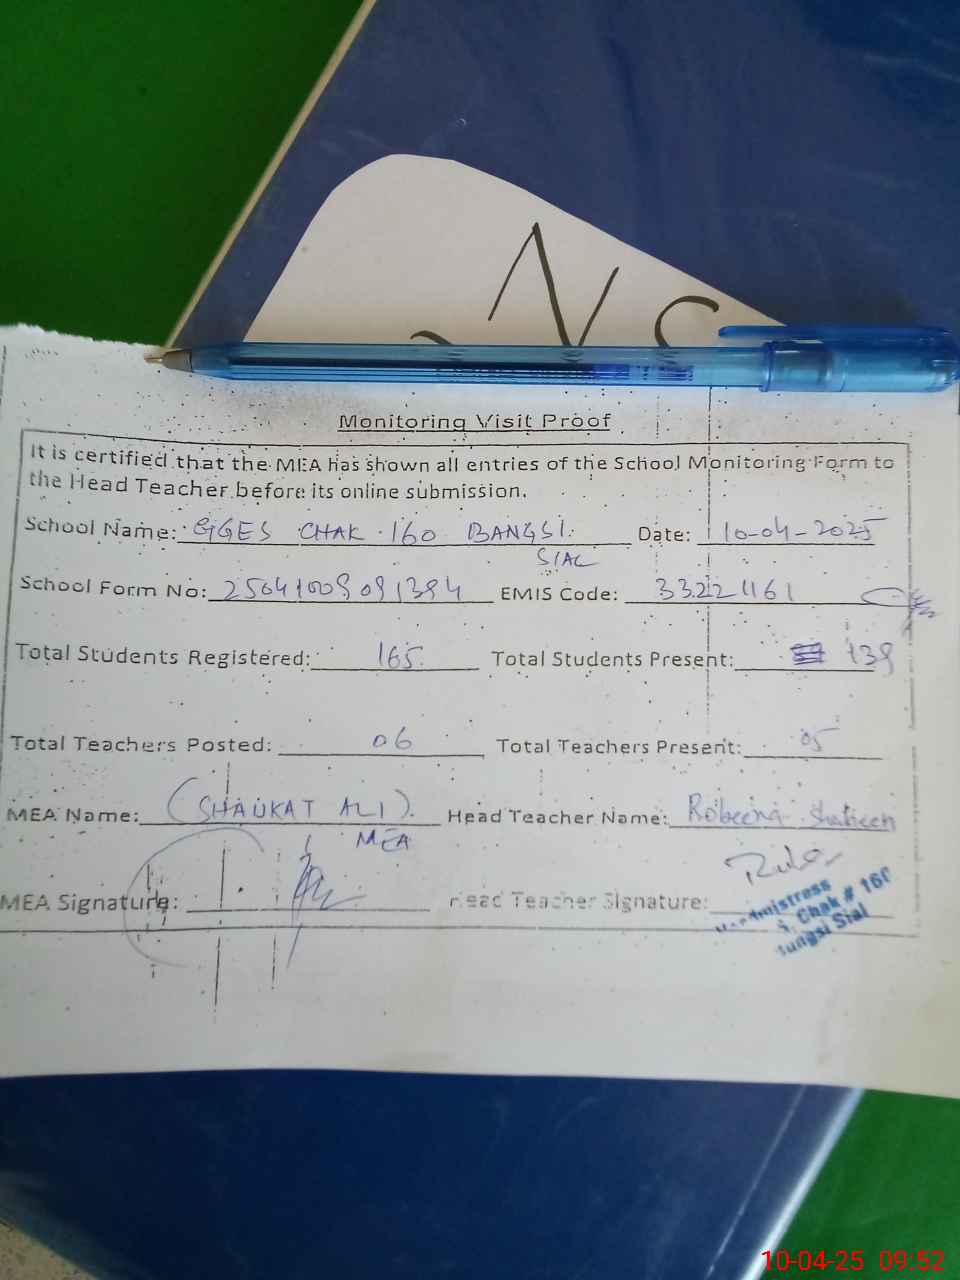 Monitoring Visit Proof
It is certified that the MEA has shown all entries of the School Monitoring Form to
the Head Teacher before its online submission.
School Name: GGES CHAK 160 BANGSI Date: 10-04-2025
SIAL
School Form No: EMIS Code: 33221161
Total Students Registered: 165 Total Students Present: 139
Total Teachers Posted: 06 Total Teachers Present: 05
MEA Name: (SHAUKAT ALI) Head Teacher Name: Robeena Shaheen
MEA
MEA Signature: Head Teacher Signature:
Chak # 160
Sial
10-04-25 09:52